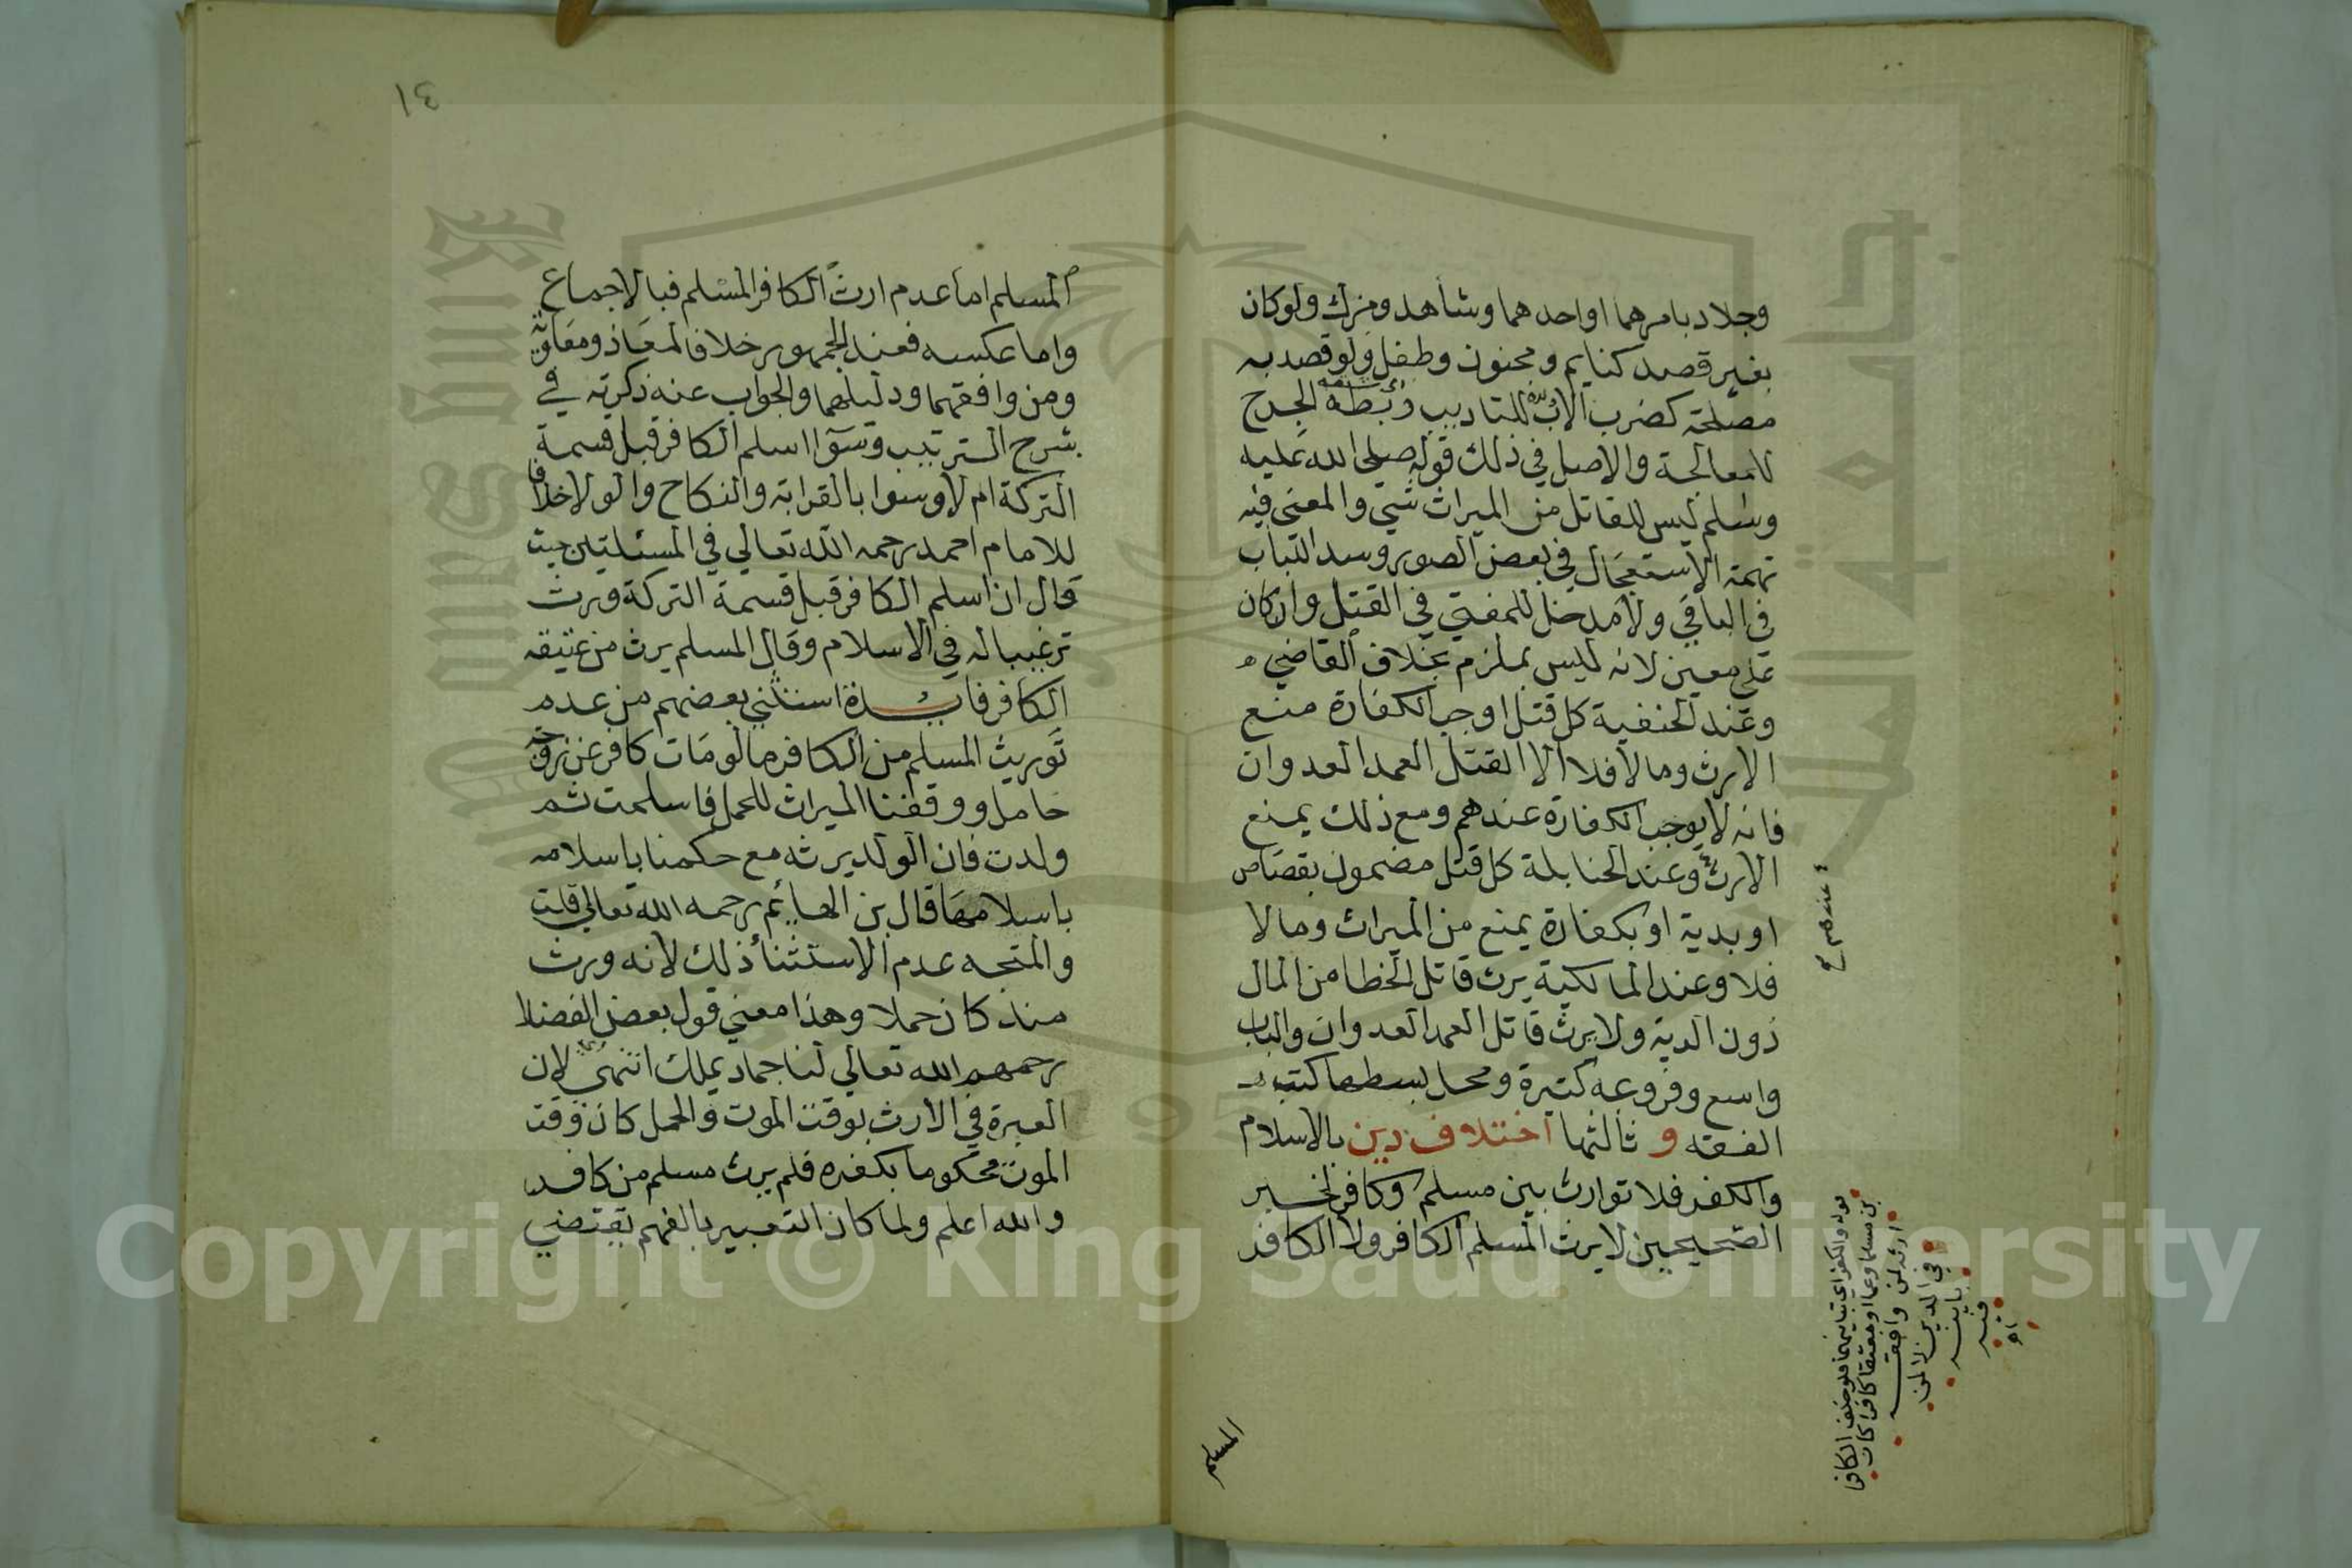 وجلاد بامرهما او احدهما وشاهد ومزك ولو كان
بغير قصد كنايم ومجنون وطفل ولو قصد به
مصلحة كضرب الاب للتاديب وبطه الجرح
للمعالجة والاصل في ذلك قوله صلى الله عليه
وسلم ليس للقاتل من الميراث شي والمعنى فيه
تهمة الاستعجال في بعض الصور وسد الباب
في الباقي ولا مدخل للمفتي في القتل وان كان
على معين لانه ليس بملزم بخلاف القاضي
وعند الحنفية كل قتل اوجب الكفارة منع
الارث وما لا فلا الا القتل العمد العدوان
فانه لا يوجب الكفارة عندهم ومع ذلك يمنع
الارث وعند الحنابلة كل قتل مضمون بقصاص
او بدية او بكفارة يمنع من الميراث وما لا
فلا وعند المالكية يرث قاتل الخطا من المال
دون الدية ولا يرث قاتل العمد العدوان والباب
واسع وفروعه كثيرة ومحل بسطها كتب
الفقه و ثالثها اختلاف دين بالاسلام
والكفر فلا توارث بين مسلم وكافر لخبر
الصحيحين لا يرث المسلم الكافر ولا الكافر
عندهم
قوله والكفر اي
بن مسلما وعما او معتقا كافرا كان
ارثه لمن وافقه
في الدين لا لمن
باينه
فيه
المسلم
١٤
المسلم اما عدم ارث الكافر المسلم فبالاجماع
واما عكسه فعند الجمهور خلافا لمعاذ ومعاوية
ومن وافقهما ودليلهما والجواب عنه ذكرته في
شرح الترتيب وسوا اسلم الكافر قبل قسمة
التركة ام لا وسوا بالقرابة والنكاح والولا خلافا
للامام احمد رحمه الله تعالي في المسئلتين حيث
قال ان اسلم الكافر قبل قسمة التركة ورث
ترغيبا له في الاسلام وقال المسلم يرث من عتيقه
الكافر فايدة استثنى بعضهم من عدم
توريث المسلم من الكافر ما لو مات كافر عن زوجة
حامل ووقفنا الميراث للحمل فاسلمت ثم
ولدت فان الولد يرثه مع حكمنا باسلامه
باسلامها قال بن الهائم رحمه الله تعالي قلت
والمتجه عدم الاستثناء ذلك لانه ورث
منذ كان حملا وهذا معني قول بعض الفضلا
رحمهم الله تعالي لنا جماد يملك انتهى لان
العبرة في الارث بوقت الموت والحمل كان وقت
الموت محكوما بكفره فلم يرث مسلم من كافر
والله اعلم ولما كان التعبير بالفهم يقتضي
Copyright © King Saud University